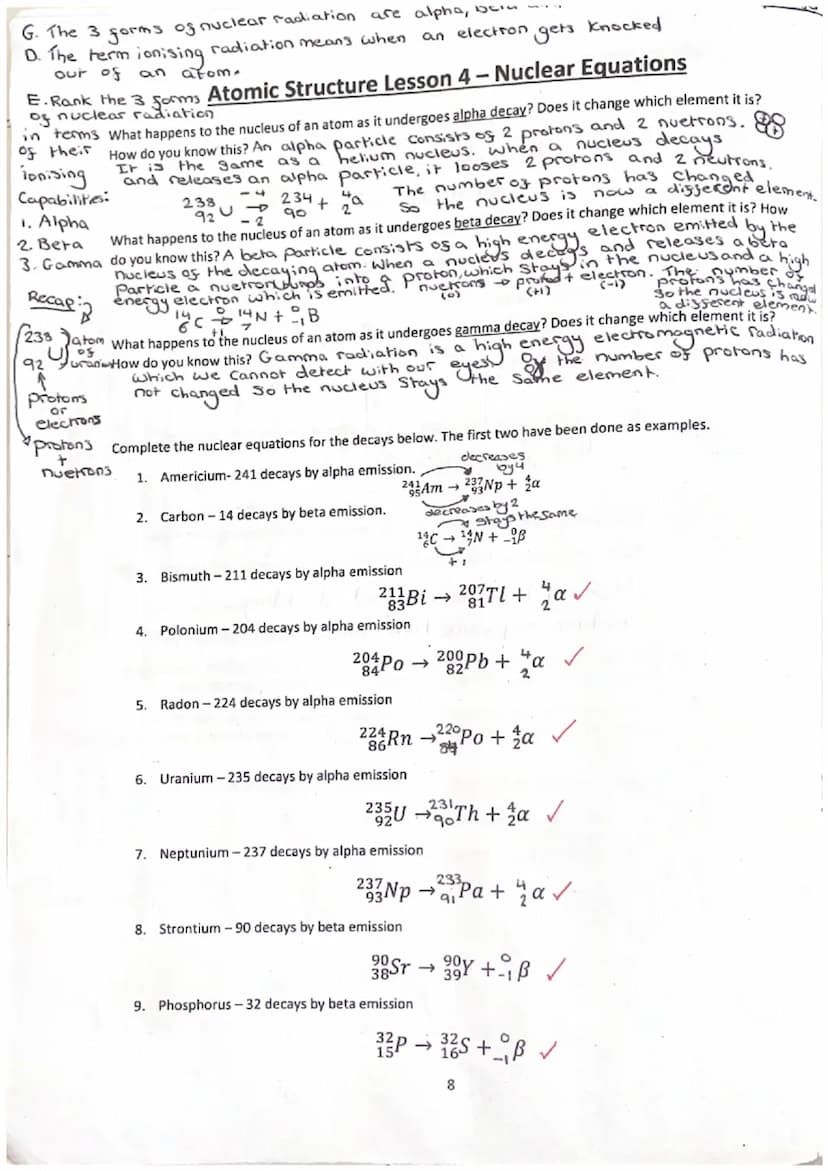 G. The 3 forms of nuclear radiation are alpha,
D. The term ionising radiation means when an electron gets knocked
out of an atom.
E. Rank the 3 forms
of nuclear radiation
in terms
of their
ionising
Capabilities:
1. Alpha
2. Beta
3. Gamma
Recap:
238
92 U
atom
of
uranium
protons
or
electrons
protons
+
nuetrons
Atomic Structure Lesson 4 – Nuclear Equations
What happens to the nucleus of an atom as it undergoes alpha decay? Does it change which element it is?
How do you know this? An alpha particle consists of 2 protons and 2 nuetrons.
It is the same as a helium nucleus. When a nucleus decays
and releases an alpha particle, it looses 2 protons and 2 neutrons.
The number of protons has changed
So the nucleus is now a different element.
-4
238 92 U → 234 90 + 4 2 α
-2
What happens to the nucleus of an atom as it undergoes beta decay? Does it change which element it is? How
do you know this? A beta particle consists of a high energy electron emitted by the
nucleus of the decaying atom. When a nucleus decays and releases a beta
Particle a nuetron turns into a proton, which stays in the nucleus and a high
energy electron which is emitted. nuetrons → proton + electron. The number of
(0) (+1) (-1)
protons has changed
So the nucleus is now
a different element.
0
14 6 C → 14 7 N + 0 -1 B
+1
What happens to the nucleus of an atom as it undergoes gamma decay? Does it change which element it is?
How do you know this? Gamma radiation is a high energy electromagnetic radiation
which we cannot detect with our eyes. the number of protons has
not changed so the nucleus stays the same element.
Complete the nuclear equations for the decays below. The first two have been done as examples.
1. Americium- 241 decays by alpha emission.
decreases
by 4
241 95 Am → 237 93 Np + 4 2 α
decreases by 2
2. Carbon – 14 decays by beta emission.
stays the same
14 6 C → 14 7 N + 0 -1 β
+1
3. Bismuth – 211 decays by alpha emission
211 83 Bi → 207 81 Tl + 4 2 α ✓
4. Polonium – 204 decays by alpha emission
204 84 Po → 200 82 Pb + 4 2 α ✓
5. Radon – 224 decays by alpha emission
224 86 Rn → 220 84 Po + 4 2 α ✓
6. Uranium – 235 decays by alpha emission
235 92 U → 231 90 Th + 4 2 α ✓
7. Neptunium – 237 decays by alpha emission
237 93 Np → 233 91 Pa + 4 2 α ✓
8. Strontium – 90 decays by beta emission
90 38 Sr → 90 39 Y + 0 -1 β ✓
9. Phosphorus – 32 decays by beta emission
32 15 P → 32 16 S + 0 -1 β ✓
8